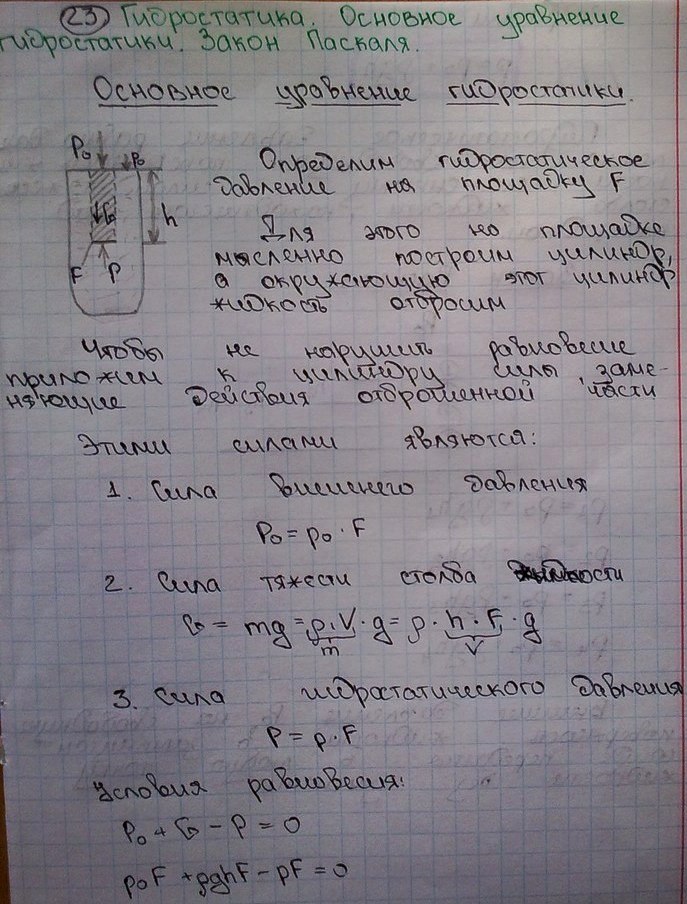 23 Гидростатика. Основное уравнение
гидростатики. Закон Паскаля.
Основное уравнение гидростатики.
P₀ p₀
G h
F P
Определим гидростатическое
давление на площадку F
Для этого на площадке
мысленно построим цилиндр,
а окружающую этот цилиндр
жидкость отбросим
Чтобы не нарушить равновесие
приложим к цилиндру силы, заме-
няющие действия отброшенной части
Этими силами являются:
1. Сила внешнего давления
P₀ = p₀ · F
2. Сила тяжести столба жидкости
G = mg = ρ · V · g = ρ · h · F · g
m V
3. Сила гидростатического давления
P = p · F
Условия равновесия:
P₀ + G - P = 0
p₀F + ρghF - pF = 0